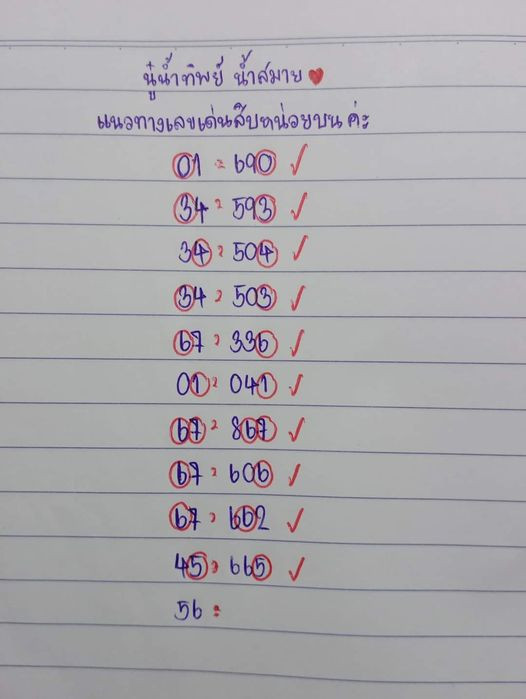 นู๋น้ำทิพย์ น้ำสมาย ❤
แนวทางเลขเด่นสิบหน่อยบน ค่ะ
01 = 690 ✓
34 = 593 ✓
34 = 504 ✓
34 = 503 ✓
67 = 336 ✓
01 = 041 ✓
67 = 867 ✓
67 = 606 ✓
67 = 662 ✓
45 = 665 ✓
56 =